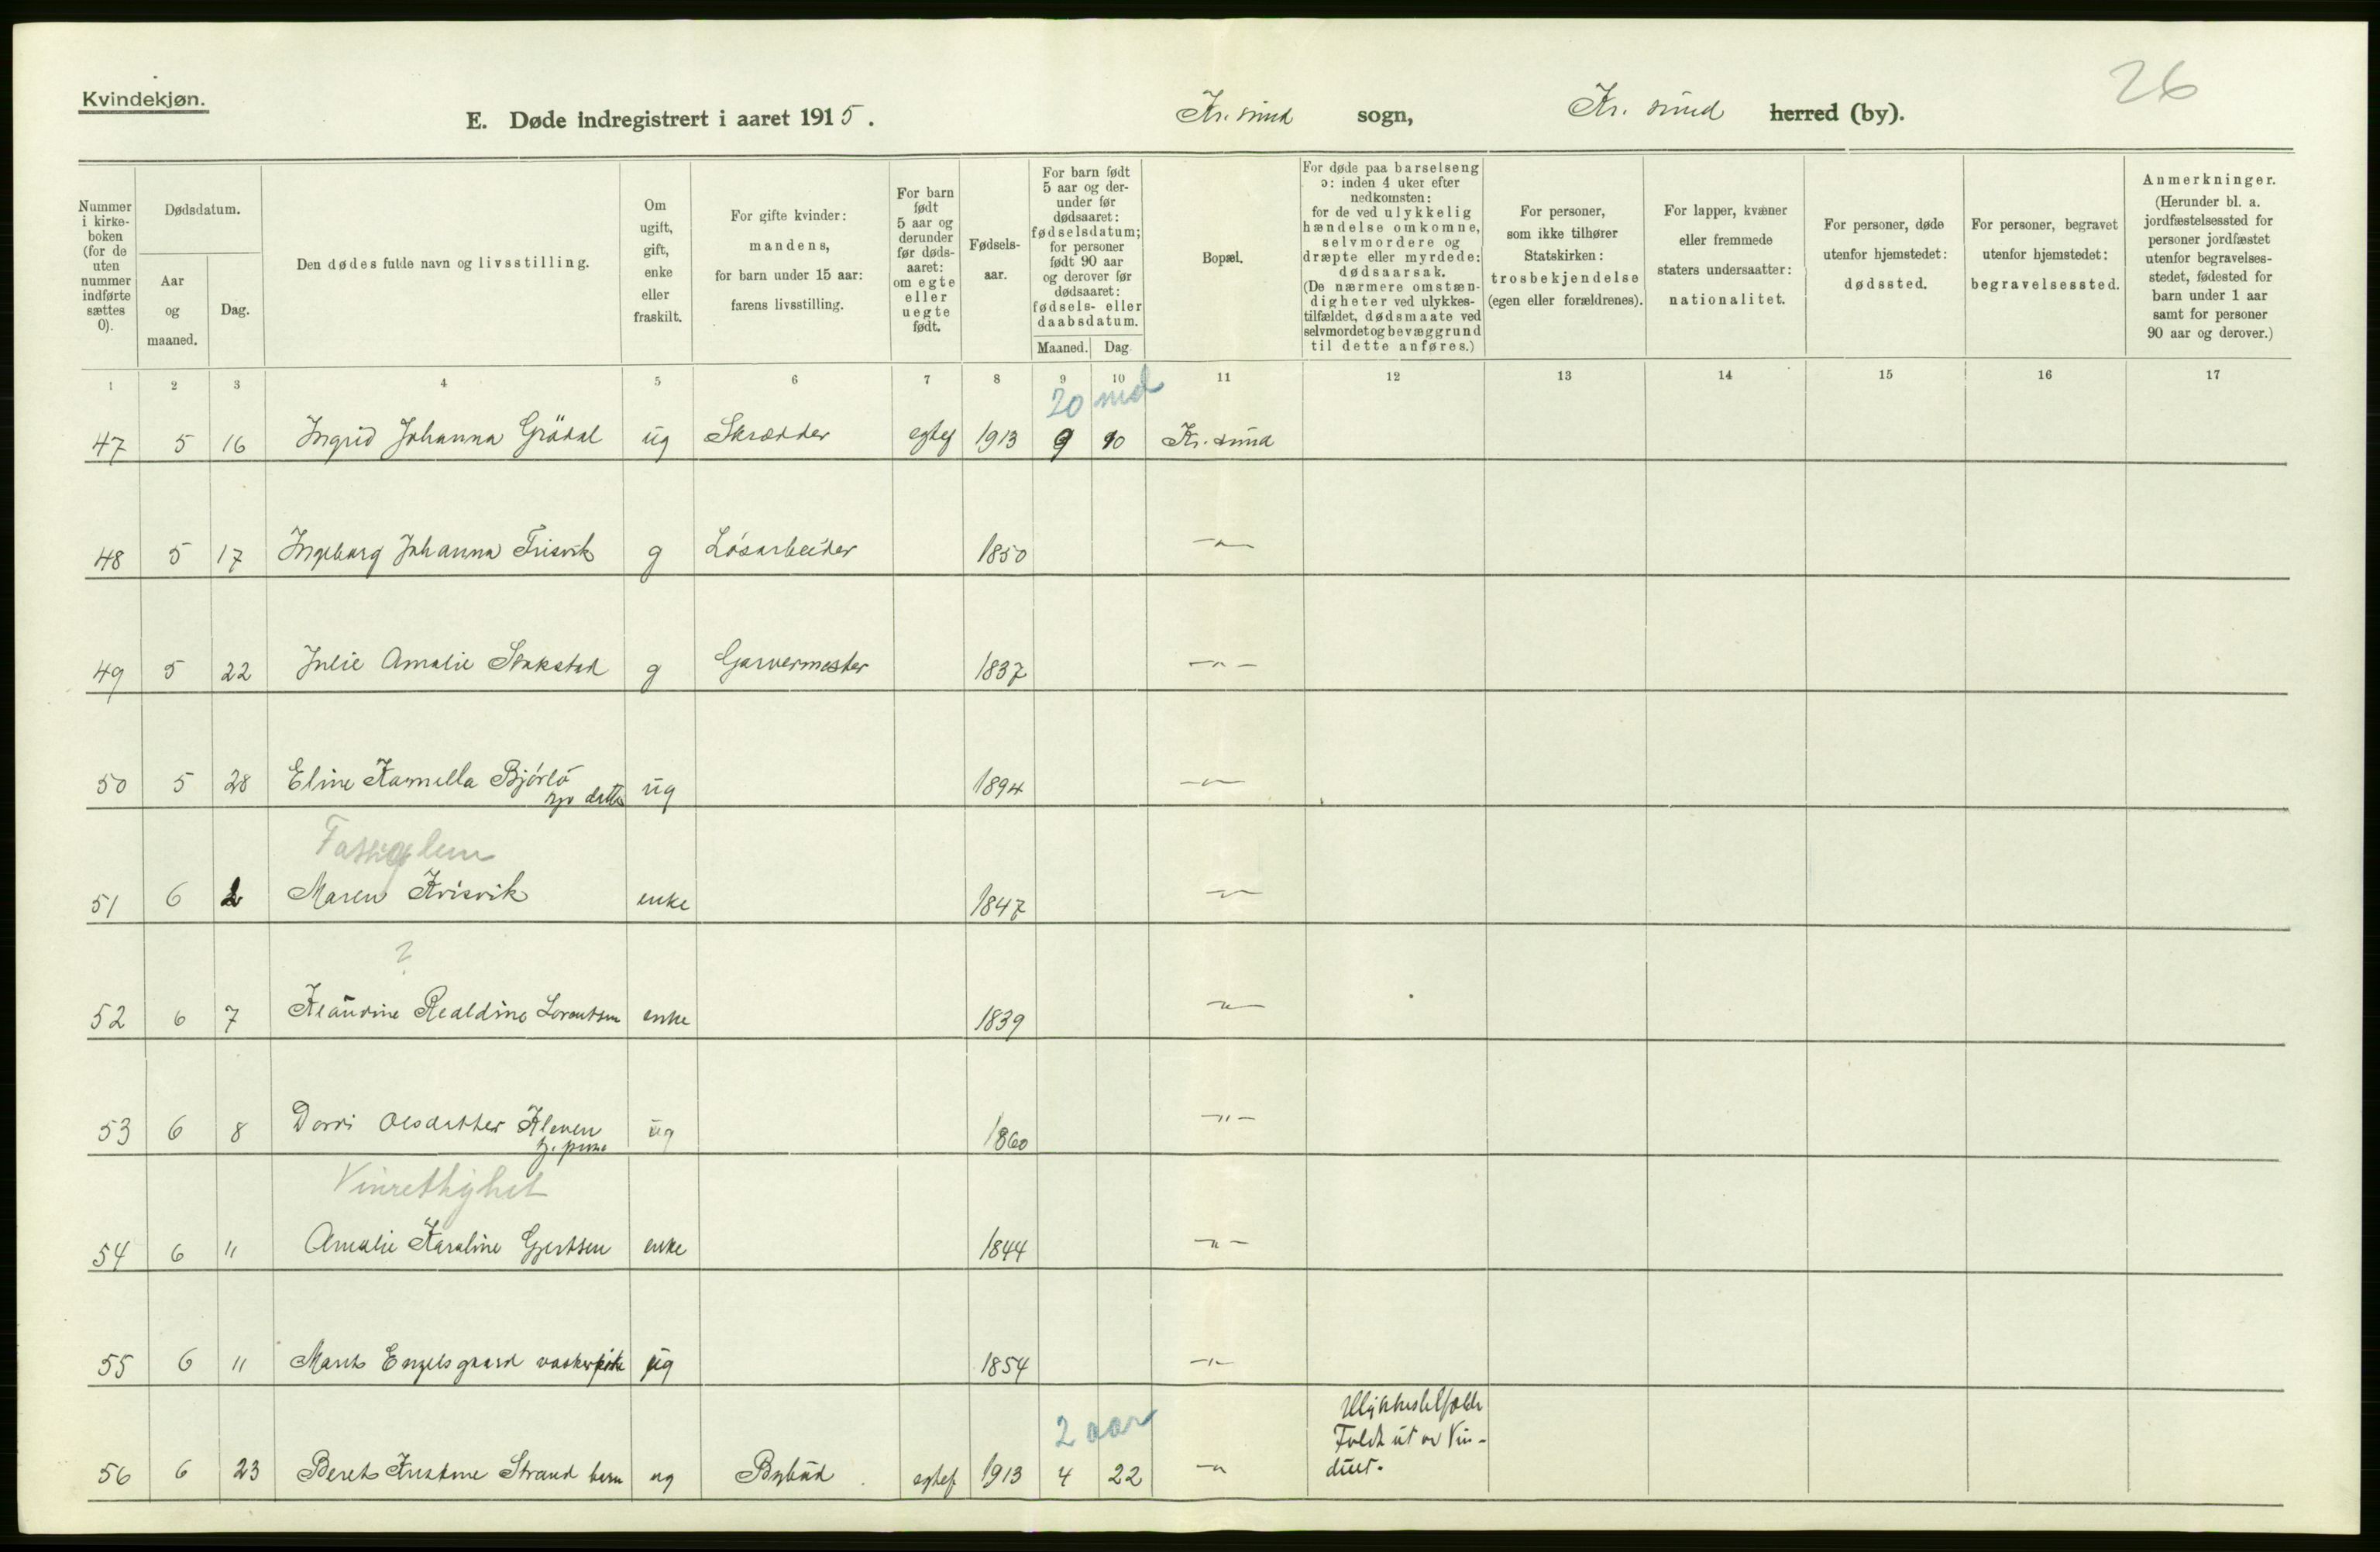 26
Kvindekjøn.
E. Døde indregistrert i aaret 1915. Kr.sund sogn, Kr. sund herred (by).
Nummer i kirke-boken (for de uten nummer indførte sættes 0).
Dødsdatum.
Aar og maaned.
Dag.
Den dødes fulde navn og livsstilling.
Om ugift, gift, enke eller fraskilt.
For gifte kvinder: mandens, for barn under 15 aar: farens livsstilling.
For barn født 5 aar og derunder før døds-aaret: om egte eller uegte født.
Fødsels-aar.
For barn født 5 aar og der-under før dødsaaret: fødselsdatum; for personer født 90 aar og derover før dødsaaret: fødsels- eller daabsdatum.
Maaned. Dag
Bopæl.
For døde paa barselseng ɔ: inden 4 uker efter nedkomsten: for de ved ulykkelig hændelse omkomne, selvmordere og dræpte eller myrdede: dødsaarsak. (De nærmere omstæn-digheter ved ulykkes-tilfældet, dødsmaate ved selvmord et og bevæggrund til dette anføres.)
For personer, som ikke tilhører Statskirken: trosbekjendelse (egen eller forældrenes).
For lapper, kvæner eller fremmede staters undersaatter: nationalitet.
For personer, døde utenfor hjemstedet: dødssted.
For personer, begravet utenfor hjemstedet: begravelsessted.
Anmerkninger. (Herunder bl. a. jordfæstelsessted for personer jordfæstet utenfor begravelses-stedet, fødested for barn under 1 aar samt for personer 90 aar og derover.)
1 2 3 4 5 6 7 8 9 10 11 12 13 14 15 16 17
20 md
47 5 16 Ingrid Johanna Grödal ug Skrædder egtef 1913 9 10 Kr. sund
48 5 17 Ingeborg Johanna Frisvik g Løsarbeider 1850 -"-
49 5 22 Julie Amalie Stokstad g Garvermester 1837 -"-
50 5 28 Eline Kamilla Bjørlö ug 1894 -"-
datter
Fattiglem
51 6 2 Maren Krisvik enke 1847 -"-
?
52 6 7 Klaudine Realdine Lorentsen enke 1839 -"-
53 6 8 Dorri Olsdatter Kleven ug 1860 -"-
Vinrettighet
54 6 11 Amalie Karoline Gjertsen enke 1844 -"-
55 6 11 Marit Engelsgaard vaskerpike ug 1854 -"-
2 aar
Ulykkestilfælde
Faldt ut av Vin-
duet.
56 6 23 Beret Kristine Strand barn ug Bybud egtef 1913 4 22 -"-